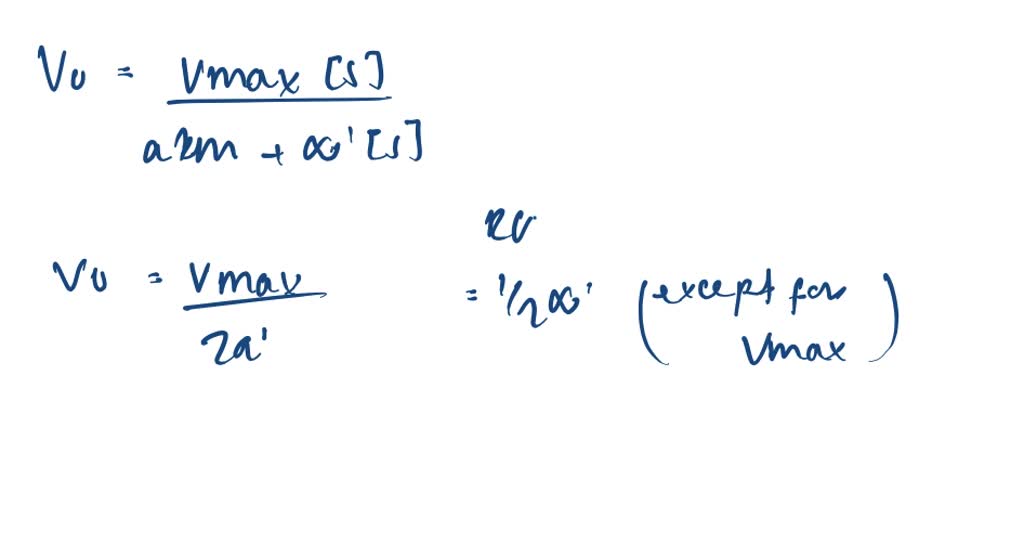 V0 = Vmax [s]
akm + α' [s]
V0 = Vmax
2a'
= 1/2α' (except for
Vmax)